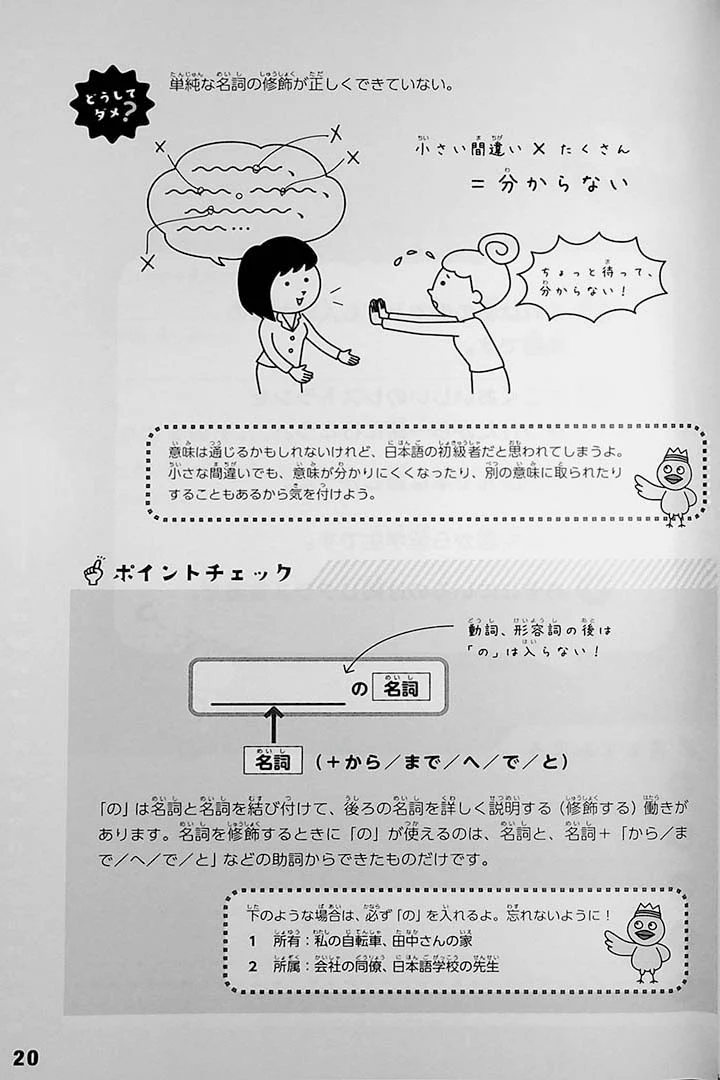 どうして
ダメ?
単純な名詞の修飾が正しくできていない。
小さい間違い × たくさん
=分からない
ちょっと待って、
分からない！
意味は通じるかもしれないけれど、日本語の初級者だと思われてしまうよ。
小さな間違いでも、意味が分かりにくくなったり、別の意味に取られたり
することもあるから気を付けよう。
ポイントチェック
動詞、形容詞の後は
「の」は入らない！
の 名詞
名詞 (＋から／まで／へ／で／と)
「の」は名詞と名詞を結び付けて、後ろの名詞を詳しく説明する（修飾する）働きが
あります。名詞を修飾するときに「の」が使えるのは、名詞と、名詞＋「から／ま
で／へ／で／と」などの助詞からできたものだけです。
下のような場合は、必ず「の」を入れるよ。忘れないように！
1 所有：私の自転車、田中さんの家
2 所属：会社の同僚、日本語学校の先生
20